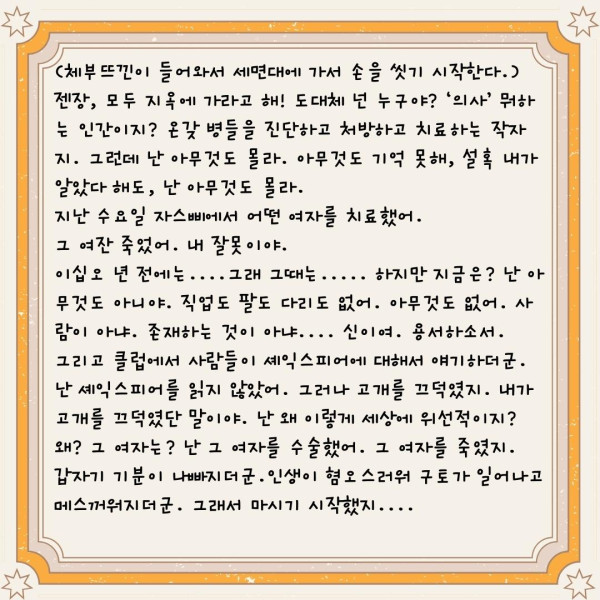 (체부뜨낀이 들어와서 세면대에 가서 손을 씻기 시작한다.)
젠장, 모두 지옥에 가라고 해! 도대체 넌 누구야? ‘의사’ 뭐하
는 인간이지? 온갖 병들을 진단하고 처방하고 치료하는 작자
지. 그런데 난 아무것도 몰라. 아무것도 기억 못해, 설혹 내가
알았다 해도, 난 아무것도 몰라.
지난 수요일 자스삐에서 어떤 여자를 치료했어.
그 여잔 죽었어. 내 잘못이야.
이십오 년 전에는....그래 그때는..... 하지만 지금은? 난 아
무것도 아니야. 직업도 팔도 다리도 없어. 아무것도 없어. 사
람이 아냐. 존재하는 것이 아냐.... 신이여. 용서하소서.
그리고 클럽에서 사람들이 셰익스피어에 대해서 얘기하더군.
난 셰익스피어를 읽지 않았어. 그러나 고개를 끄덕였지. 내가
고개를 끄덕였단 말이야. 난 왜 이렇게 세상에 위선적이지?
왜? 그 여자는? 난 그 여자를 수술했어. 그 여자를 죽였지.
갑자기 기분이 나빠지더군.인생이 혐오스러워 구토가 일어나고
메스꺼워지더군. 그래서 마시기 시작했지....